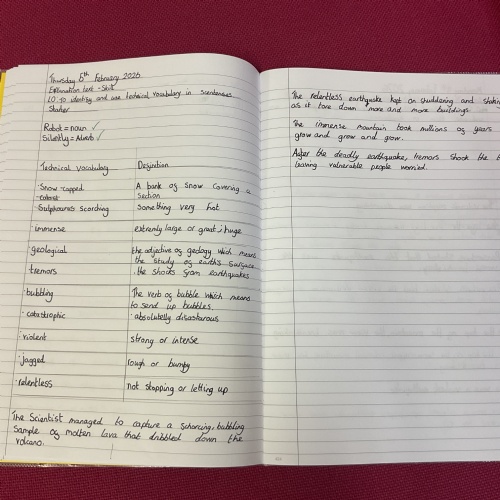 Thursday 6th February 2025
Explanation text - Skill
LO: to identify and use technical vocabulary in scentences
Starter
Robot = noun ✓
Silently = Adverb ✓
Technical vocabulary Definition
Snow-capped A bank of snow covering a
catast section
Sulphurous scorching Something very hot
immense extremly large or great; huge
geological the adjective of geology which means
the study of earths surface
tremors the shocks from earthquakes
bubbling The verb of bubble which means
to send up bubbles.
catastrophic absolutelly disastarous
violent strong or intense
jagged rough or bumpy
relentless not stopping or letting up
The Scientist managed to capture a schorcing, bubbling
Sample of molten lava that dribbled down the
volcano.
The relentless earthquake kept on shuddering and
as it tore down more and more buildings.
The immense mountain took millions of years
grow and grow and grow.
After the deadly earthquake, tremors shook the
leaving vulnerable people worried.